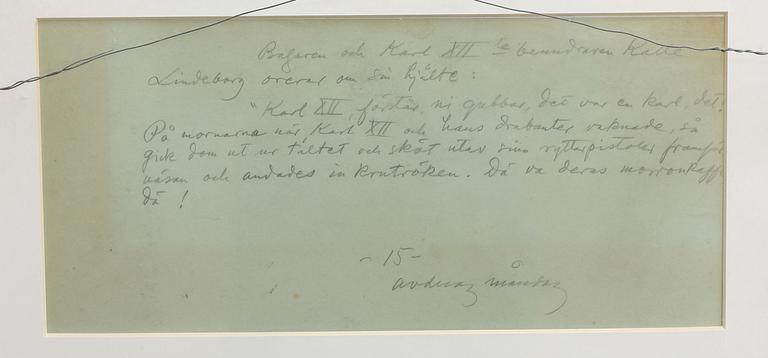 Bagaren och Karl XII te beundraren Kalle
Lindeborg orerar om sin hjälte:
"Karl XII, förstår ni gubbar, det var en karl, det!
På mornarna när Karl XII och hans drabanter vaknade, så
gick dom ut ur tältet och sköt utav sina ryttarpistoler framför
näsan och andades in krutröken. Dä va deras morronkaffe
dä!
-15-
måndag